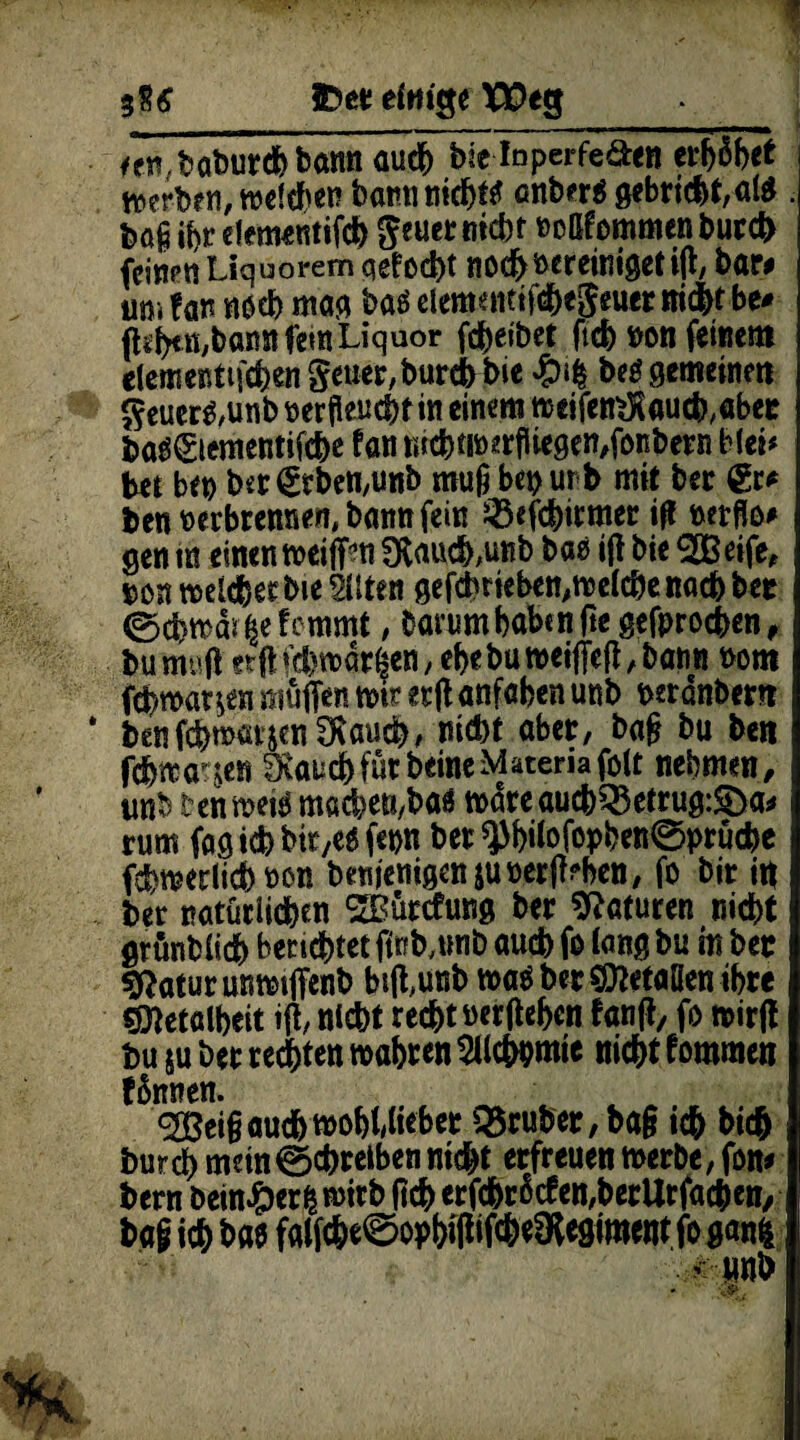 386 Der einige Weg
ren, dadurch dann auch die Inperfecten erhöhet
werden, welchen dann nichts anders gebricht, als
daß ihr elementisch Feuer nicht vollkommen durch
seinen Liquorem gekocht noch vereiniget ist, dar-
um kan noch mag das elementische Feuer nicht be-
stehen, dann sein Liquor scheidet sich von seinem
elementischen Feuer, durch die Hitz des gemeinen
Feuers, und verfleucht in einem weissen Rauch, aber
das Elementische kan nicht wegfliegen, sondern blei-
bet bey der Erden, und muß bey und mit der Er-
den verbrennen, dann sein Beschirmer ist verflo-
gen in einen weissen Rauch, und das ist die Weise,
von welcher die Alten geschrieben, welche nach der
Schwärtze kommt, darum haben sie gesprochen,
du must erst schwärtzen, ehe du weissest, dann vom
schwarzen müssen wir erst anfahen und verändern
den schwarzen Rauch, nicht aber, daß du den
schwarzen Rauch für deine Materia solt nehmen,
und den weis machen, das wäre auch Betrug: Da-
rum sag ich dir, es seyn der Philosophen Sprüche
schwerlich von denjenigen zu verstehen, so dir in
der natürlichen Würckung der Naturen nicht
gründlich berichtet sind, und auch so lang du in der
Natur unwissend bist, und was der Metallen ihre
Metalheit ist, nicht recht verstehen kanst, so wirst
du zu der rechten wahren Alchymie nicht kommen
können.
Weiß auch wohl, lieber Bruder, daß ich dich
durch mein Schreiben nicht erfreuen werde, son-
dern dein Hertz wird sich erschröcken, der Ursachen,
daß ich das falsche Sophistische Regiment so gantz
und